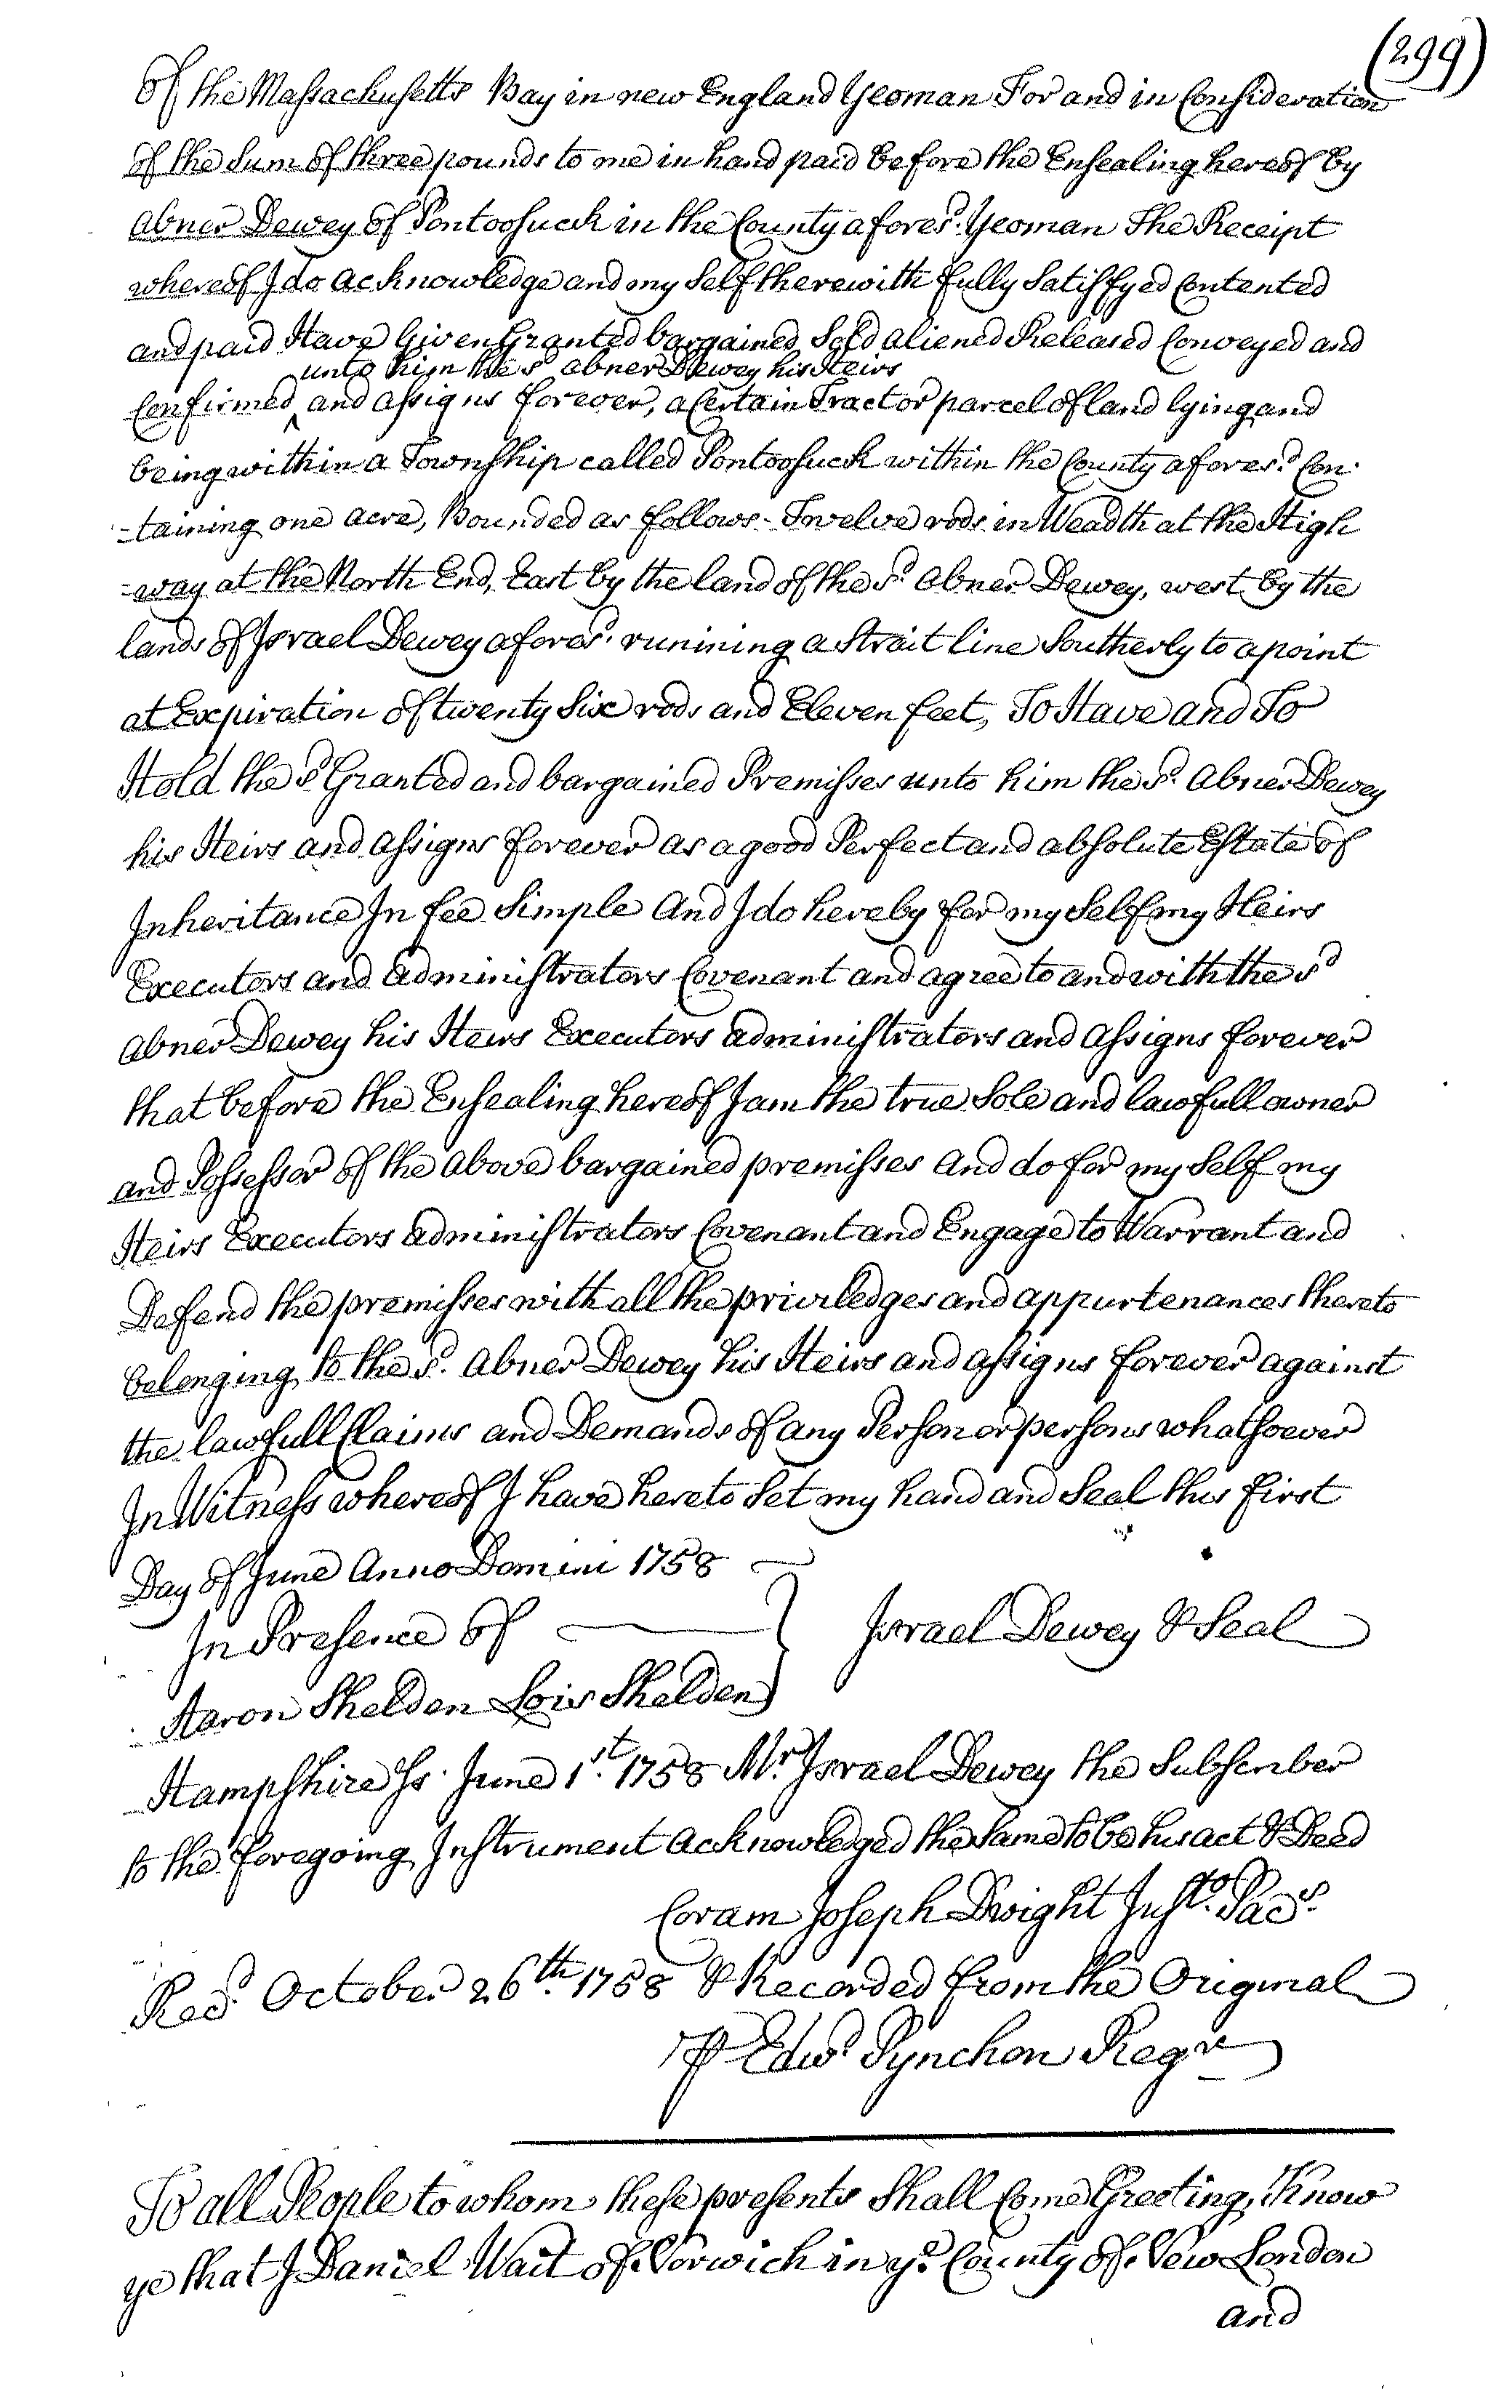 (299)
Of the Massachusetts Bay in new England Yeoman For and in Consideration
of the Sum of three pounds to me in hand paid before the Ensealing hereof by
Abner Dewey of Pontoosuck in the County afores.d Yeoman The Receipt
whereof I do acknowledge and my Self therewith fully Satisfyed Contented
and paid Have Given Granted bargained Sold aliened Released Conveyed and
unto him the sd Abner Dewey his Heirs
Confirmed ‸ and assigns forever, a Certain Tract or parcel of land lying and
being within a Township called Pontoosuck within the County afores.d Con-
-taining one acre, Bounded as follows - Twelve rods in Weadth at the High
-way at the North End, East by the land of the sd Abner Dewey, west by the
lands of Israel Dewey afores.d runining a Strait line Southerly to a point
at Expiration of twenty Six rods and Eleven feet, To Have and To
Hold the sd Granted and bargained Premisses unto him the sd. Abner Dewey
his Heirs and assigns forever as a good Perfect and absolute Estate of
Inheritance In fee Simple And I do hereby for my Self my Heirs
Executors and administrators Covenant and agree to and with the sd
Abner Dewey his Heirs Executors administrators and assigns forever
that before the Ensealing hereof I am the true Sole and lawfull owner
and Possessor of the above bargained premisses And do for my Self my
Heirs Executors administrators Covenant and Engage to Warrant and
Defend the premisses with all the priviledges and appurtenances thereto
belonging to the sd. Abner Dewey his Heirs and assigns forever against
the lawfull Claims and Demands of any Person or persons whatsoever
In Witness whereof I have hereto Set my hand and Seal this first
Day of June Anno Domini 1758
In Presence of } Israel Dewey & Seal
Aaron Shelden Lois Shelden
Hampshire Ss. June 1.st 1758 Mr. Israel Dewey the Subscriber
to the foregoing Instrument acknowledged the same to be his act & Deed
Coram Joseph Dwight Just.o Pacs.
Recd. October 26th. 1758 & Recorded from the Original
⅌ Edwd Pynchon Regr
To all People to whom these presents Shall Come Greeting, Know
ye that I Daniel Wait of Norwich in ye. County of New London
and